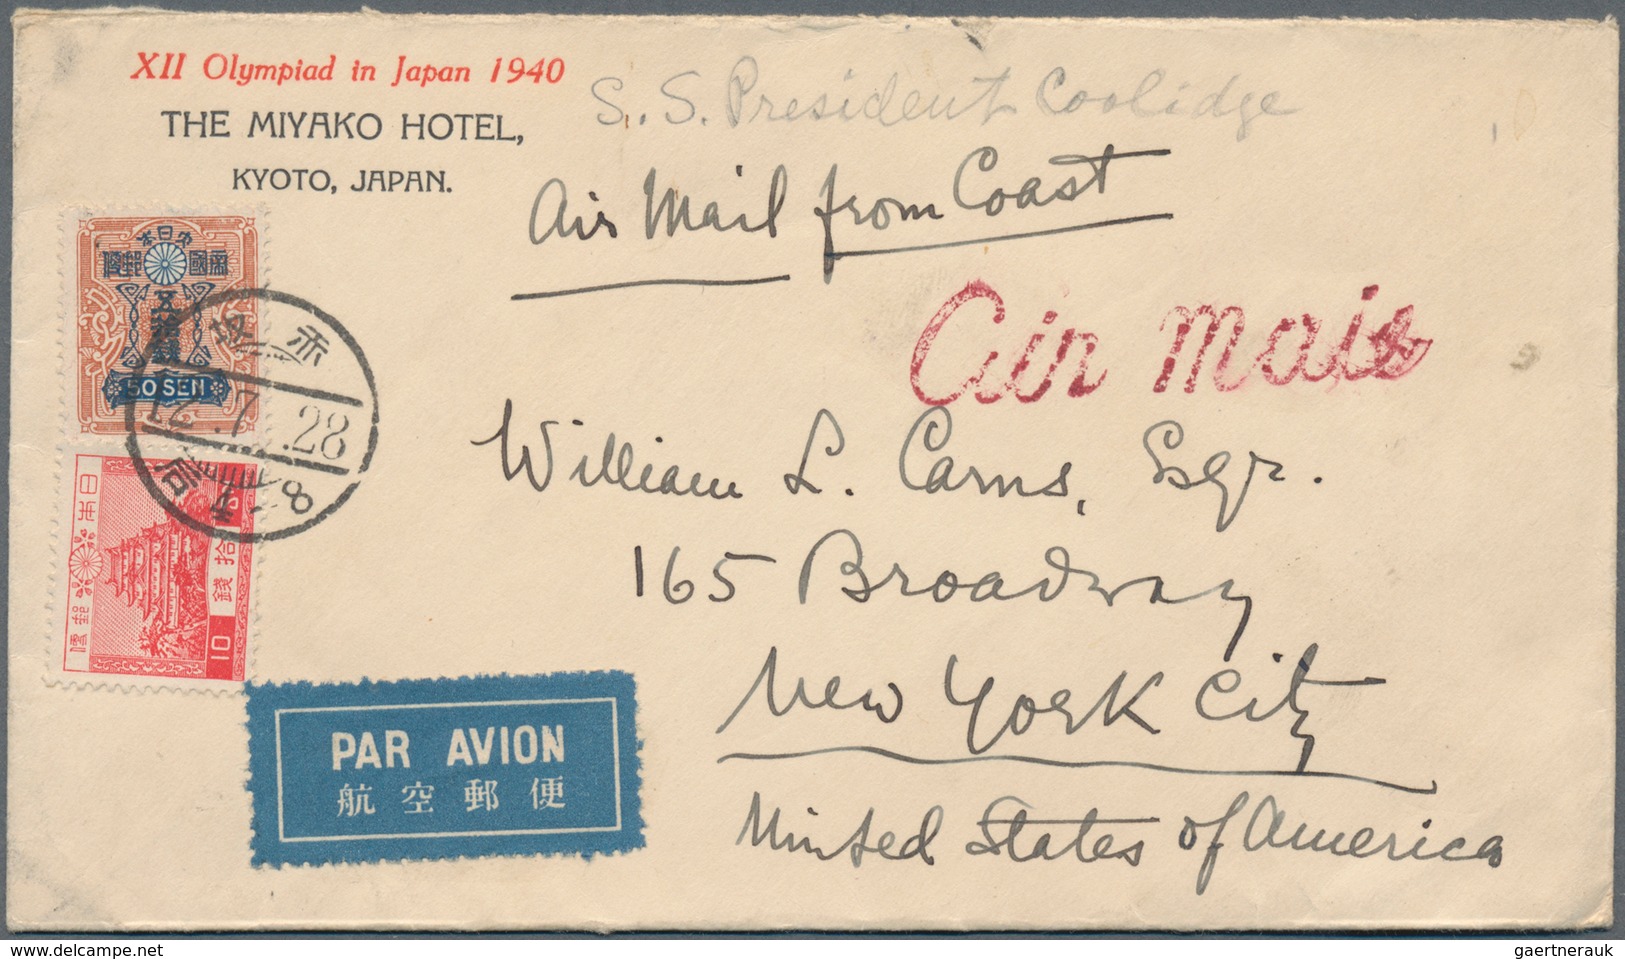 XII Olympiad in Japan 1940
THE MIYAKO HOTEL,
KYOTO, JAPAN.
S. S. President Coolidge
Air Mail from Coast
Air Mail
大日本
帝國郵便
五拾錢
50 SEN
赤坂
12.7.28
William L. Carns, Esqr.
165 Broadway
New York City
United States of America
日本郵便
拾錢
10
PAR AVION
航空郵便
gaertnerauk